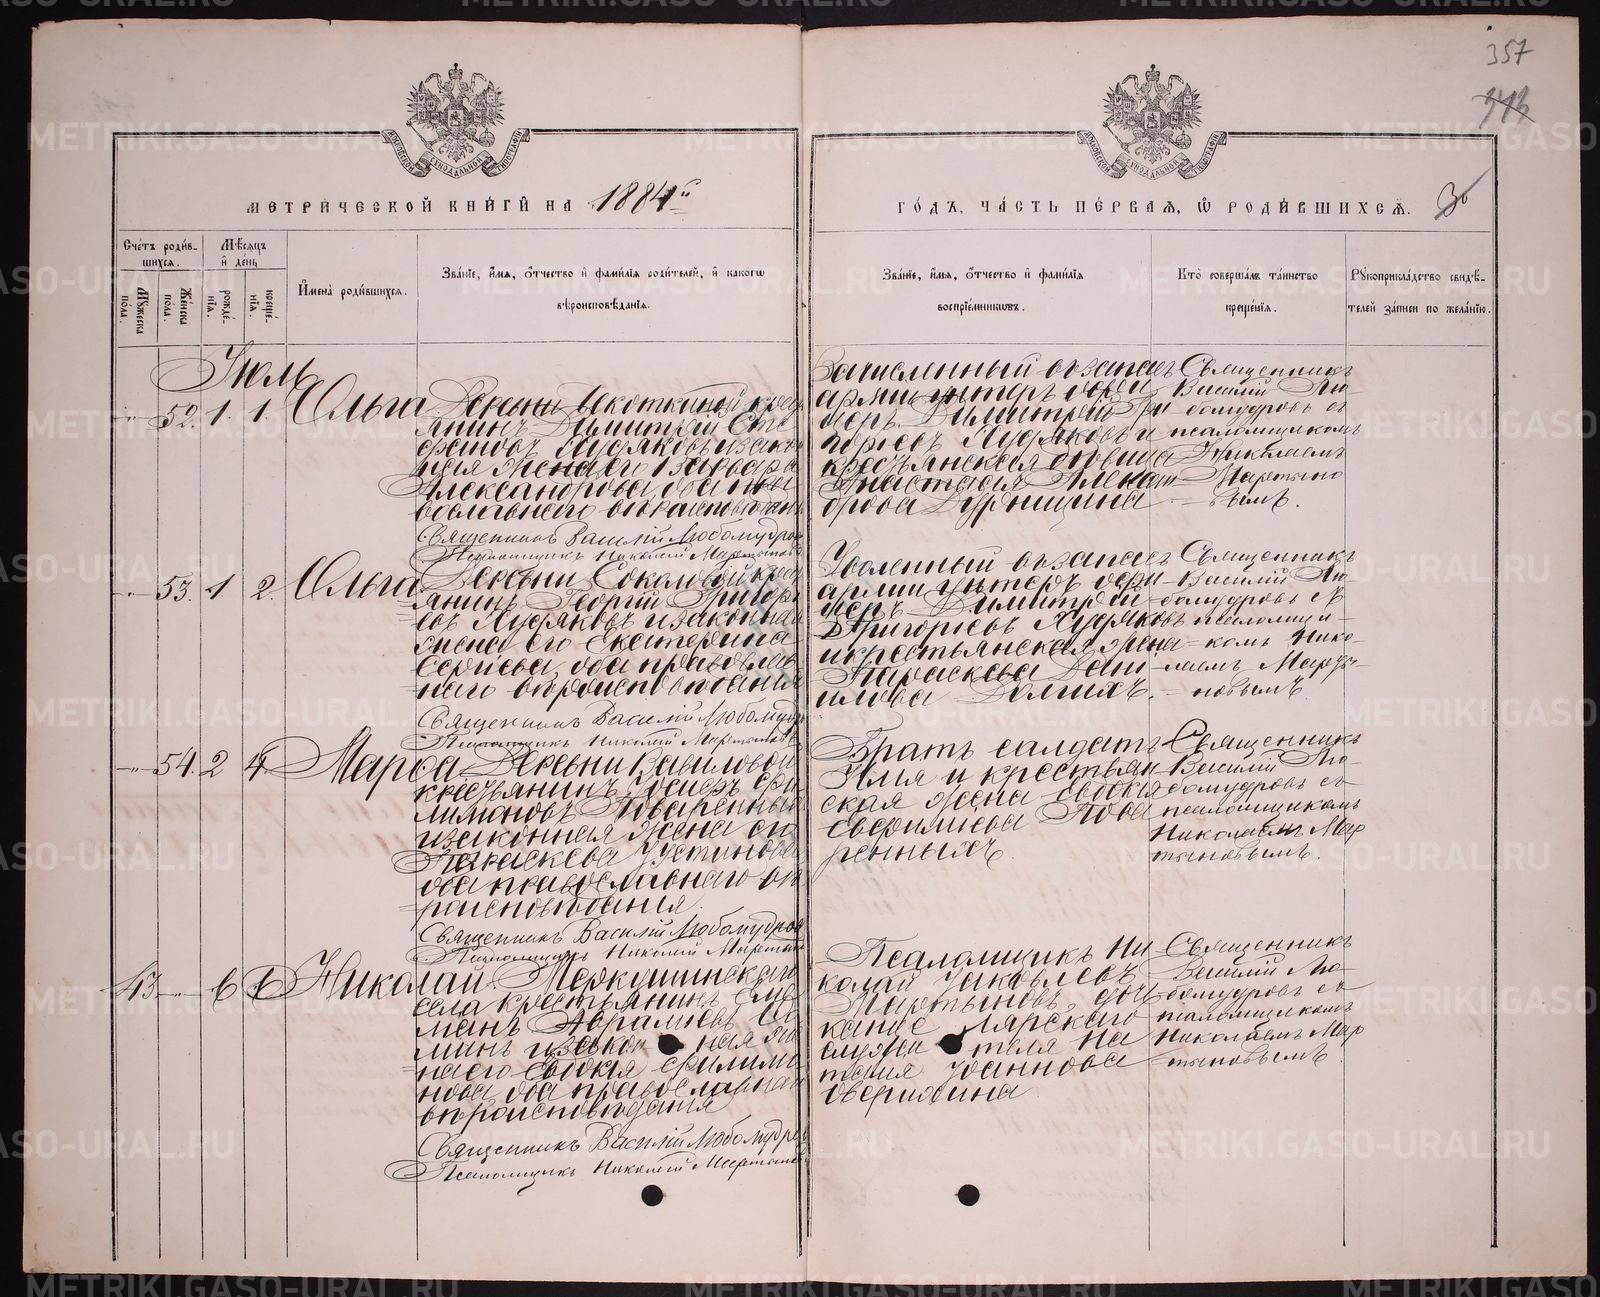 357
МОСКОВСКОЙ СѴНОДАЛЬНОЙ ТИПОГРАФІИ
МОСКОВСКОЙ СѴНОДАЛЬНОЙ ТИПОГРАФІИ
МЕТРИ́ЧЕСКОЙ КНИ́ГИ НА 1884й
ГО́ДЪ, ЧА́СТЬ ПЕ́РВАЯ, Ѽ РОДИ́ВШИХСЯ.
Сче́тъ роди́в-
шихся.
Мѣ́сяцъ
и҆ день
Мꙋ́жеска
по́ла.
Же́нска
по́ла.
рожде́-
нїѧ.
креще́-
нїѧ.
И҆мена̀ роди́вшихся.
Зва́нїе, и҆́мя, ѻ҆́тчество и҆ фами́лїя роди́телей, и҆ какогѡ
вѣроисповѣ́данїя.
Зва́нїе, и҆́мя, ѻ҆́тчество и҆ фами́лїя
воспрїе́мниковъ.
Кто̀ соверша́лъ та́инство
креще́нїя.
Рꙋкоприкла́дство свидѣ́-
телей за́писи по жела́нїю.
Іюль
52. 1. 1. Ольга
Деревни крес
янинъ Димитрій Сте
фановъ Худяковъ и закон
ная жена его Варвара
Александрова, оба пра
вославнаго вѣроисповѣдан
Священникъ Василій Любомудров
Псаломщикъ Николай Мартынов
Зачисленный въ запасъ
арміи унтеръ офи
церъ Димитрій Гри
Худяковъ и
крестьянская дѣвица
Анастасія Алексан
дрова
Священникъ
Василій Лю-
бомудровъ съ
псаломщикомъ
Николаемъ
Мартыно
вымъ.
53. 1 2. Ольга
Деревни Соколовой крес
янинъ Георгій Григорь
евъ Худяковъ и законная
жена его Екатерина
Сергіева, оба православ
наго вѣроисповѣданія
Священникъ Василій Любомудров
Псаломщикъ Николай Мартынов
Уволенный въ запасъ
арміи унтеръ офи
церъ Димитрій
Григорьевъ Худяковъ
и крестьянская жена
Параскева Дани
илова Долгихъ.
Священникъ
Василій Лю-
бомудровъ съ
псаломщи-
комъ Нико-
лаемъ Марты-
новымъ
54. 2 4. Марѳа
Деревни Вавиловой
крестьянинъ Іосифъ Фи
лимоновъ Поваренныхъ
и законная жена его
Параскева Устинова
оба православнаго вѣ
роисповѣданія.
Священникъ Василій Любомудров
Псаломщикъ Николай Мартынов
Братъ солдатъ
Илія и крестьян
ская жена Евдокія
Пова
ренныхъ.
Священникъ
Василій Лю-
бомудровъ съ
псаломщикомъ
Николаемъ Мар
тыновымъ.
43 6 6 Николай
Меркушинскаго
села крестьянинъ
Авраміевъ
минъ и законная же
на его Евдокія Филимо
нова, оба православнаго
вѣроисповѣданія
Священникъ Василій Любомудров
Псаломщикъ Николай Мартынов
Псаломщикъ Ни
колай Іаковлевъ
Мартыновъ, дочь
служителя На
талія Іоаннова
Оверихина
Священникъ
Василій Лю-
бомудровъ съ
псаломщикомъ
Николаемъ Мар
тыновымъ
METRIKI.GASO-URAL.RU